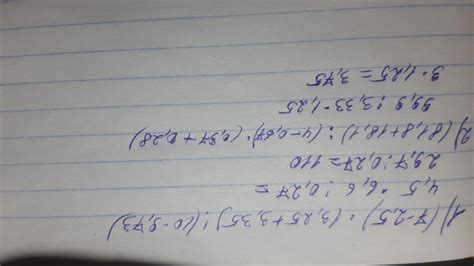 1) (7-2,5) · (3,25+3,35) : (10-9,73)
4,5 · 6,6 : 0,27 =
29,7 : 0,27 = 110
2) (81,8+18,1) : (4-0,67) · (0,97+0,28)
99,9 : 3,33 · 1,25
3 · 1,25 = 3,75